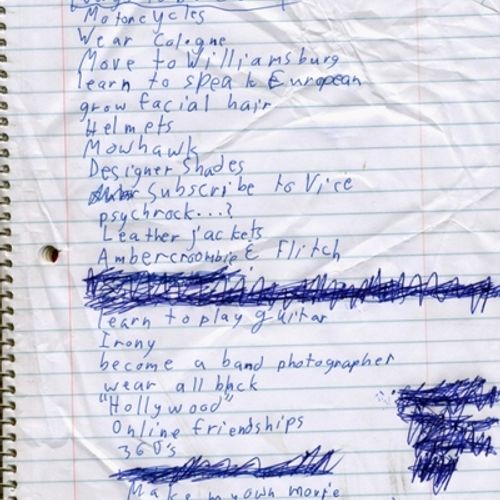 Motorcycles
Wear Cologne
Move to Williamsburg
learn to speak European
grow facial hair
Helmets
Mowhawk
Designer Shades
Subscribe to Vice
psychrock...?
Leather jackets
Ambercroombie & Flitch
learn to play guitar
Irony
become a band photographer
wear all black
"Hollywood"
Online friendships
360's
Make my own movie